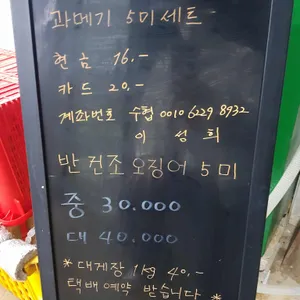 과메기 5미세트
현금 16.-
카드 20.-
계좌번호 수협 0010 6229 8932
이성희
반건조 오징어 5미
중 30.000
대 40.000
* 대게장 1kg 40.-
택배예약 받습니다 *